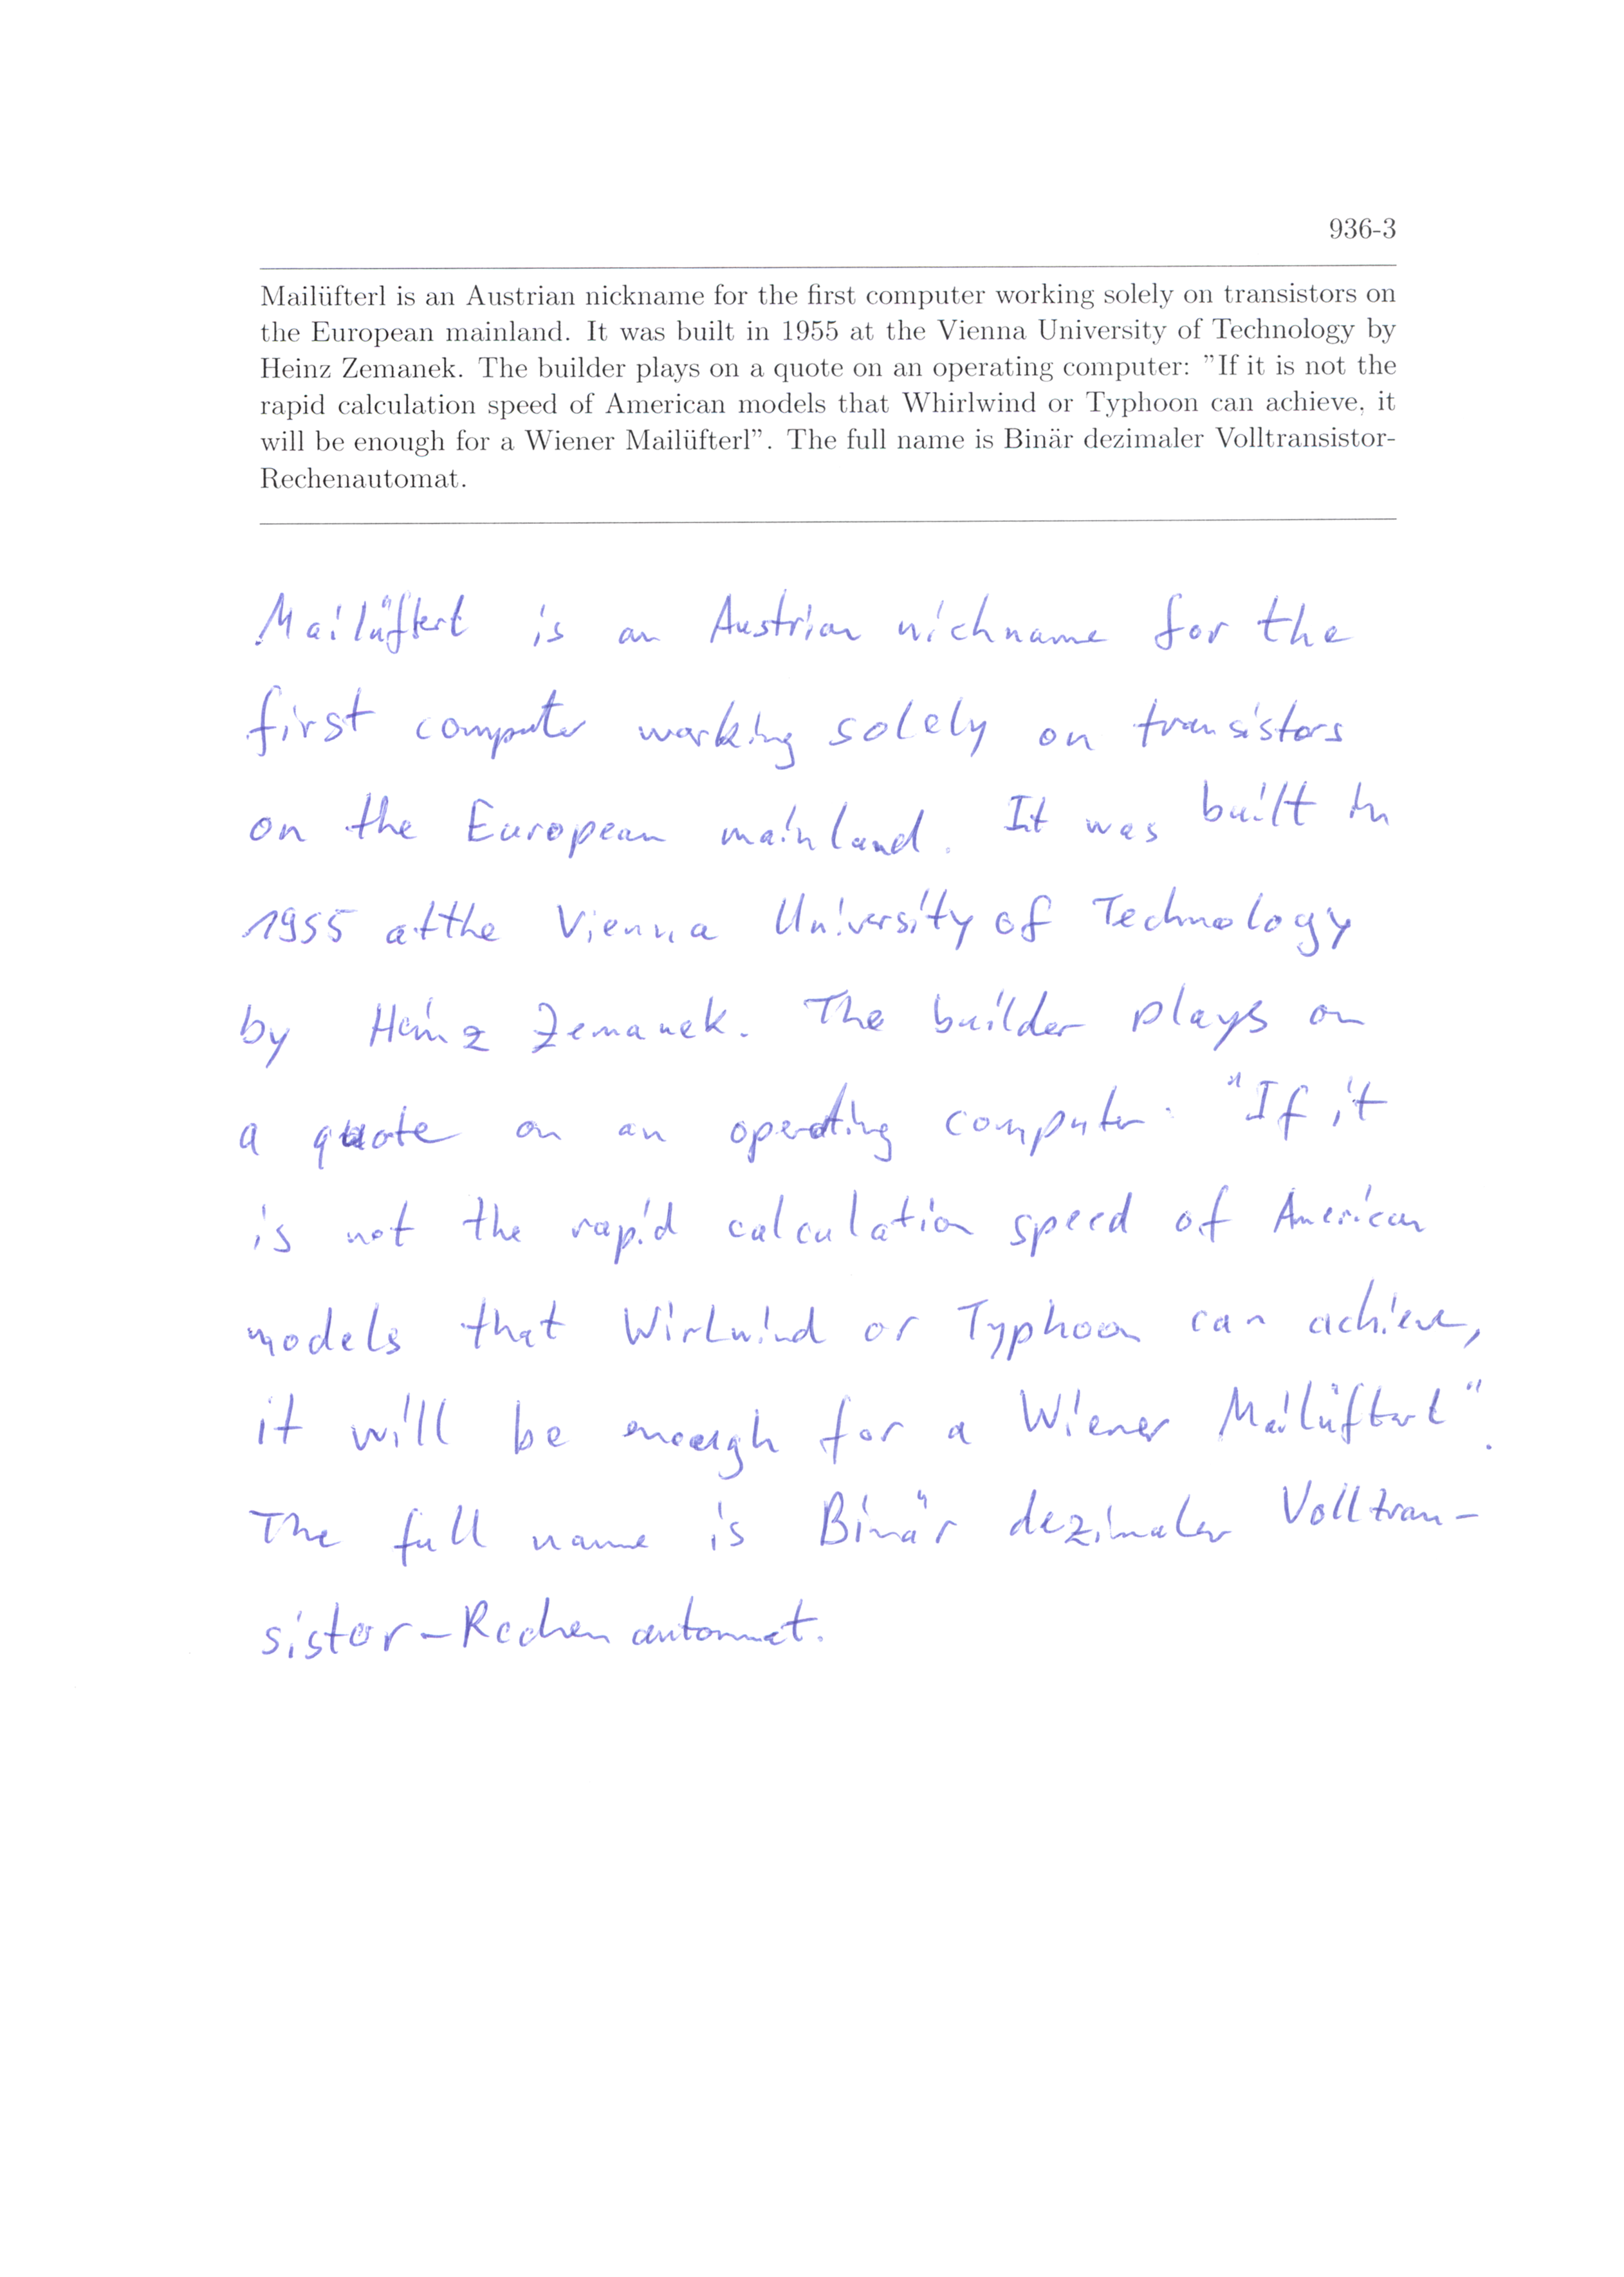 936-3
Mailüfterl is an Austrian nickname for the first computer working solely on transistors on
the European mainland. It was built in 1955 at the Vienna University of Technology by
Heinz Zemanek. The builder plays on a quote on an operating computer: "If it is not the
rapid calculation speed of American models that Whirlwind or Typhoon can achieve, it
will be enough for a Wiener Mailüfterl". The full name is Binär dezimaler Volltransistor-
Rechenautomat.
Mailüfterl is an Austrian nickname for the
first computer working solely on transistors
on the European mainland. It was built in
1955 at the Vienna University of Technology
by Heinz Zemanek. The builder plays on
a quote on an operating computer: "If it
is not the rapid calculation speed of American
models that Wirlwind or Typhoon can achieve,
it will be enough for a Wiener Mailüfterl".
The full name is Binär dezimaler Volltran-
sistor-Rechenautomat.